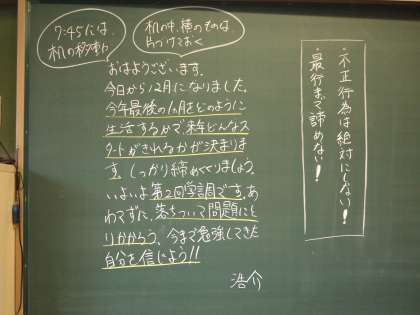 7:45には、
机の移動
机の中、横のものは、
片づけておく
おはようございます。
今日から12月になりました。
今年最後の1ヵ月をどのように
生活するかで、来年どんなス
タートがきれるかが決まりま
す。しっかり締めくくりましょう。
いよいよ第2回学調です。あ
わてずに、落ちついて問題にと
りかかろう、今まで勉強してきた
自分を信じよう!!
浩介
・不正行為は絶対にしない!
・最後まで諦めない!